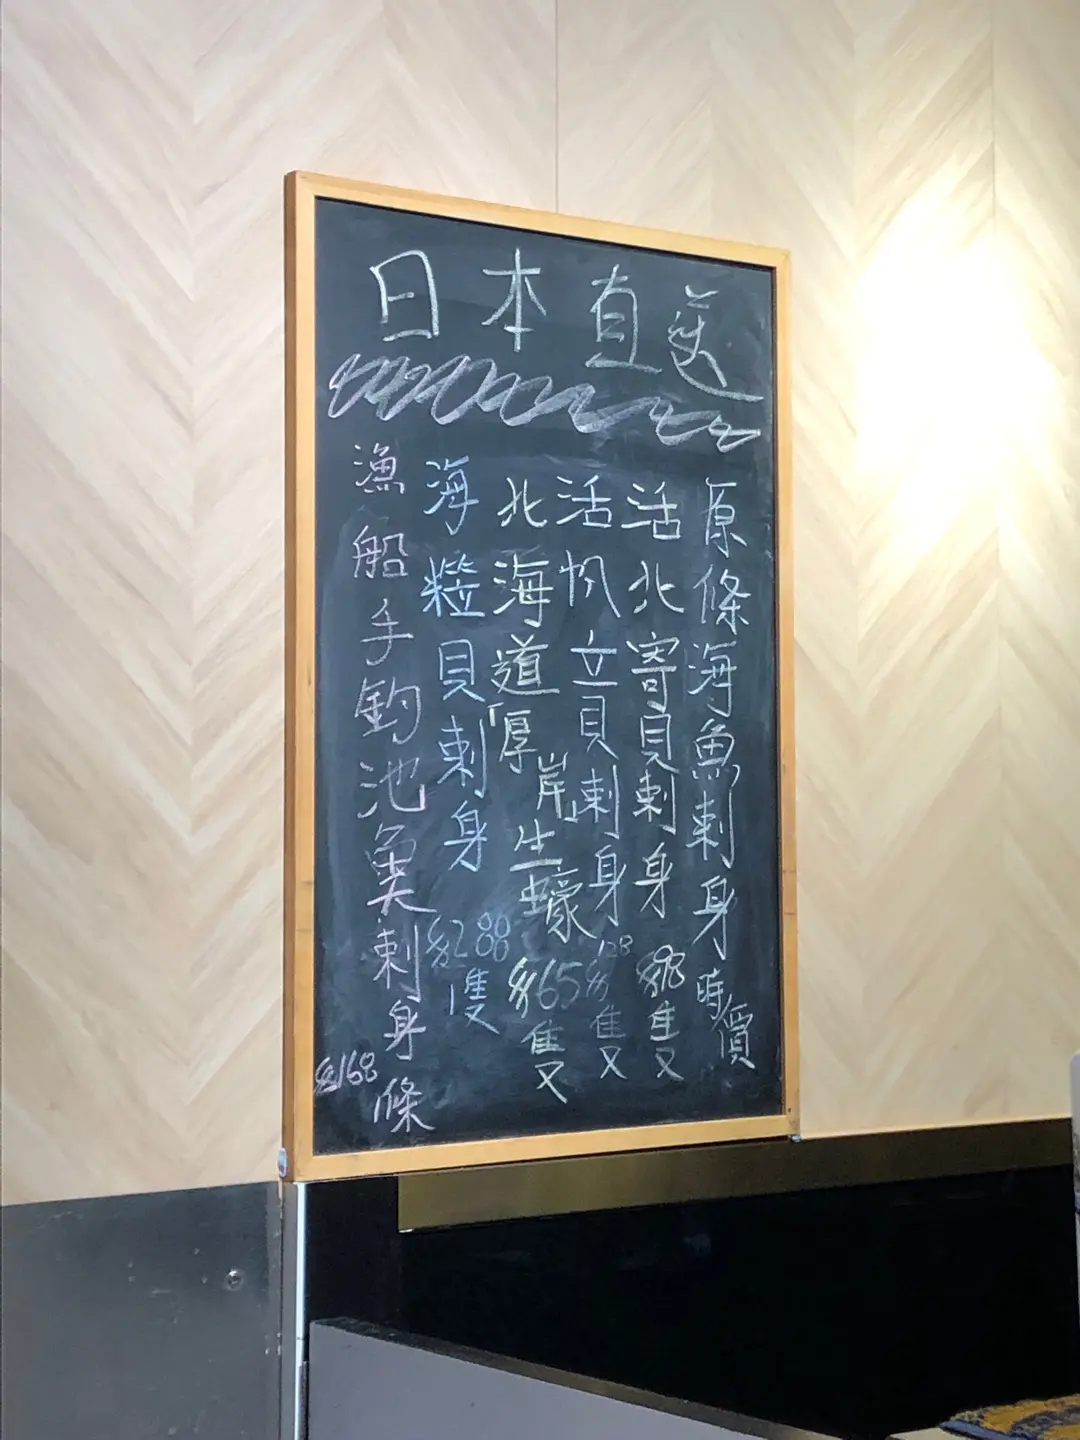 日本直送
原條海魚刺身時價
活北寄貝刺身 隻
活帆立貝刺身 $128 隻
北海道「厚岸」生蠔 $65 隻
海螫貝刺身 $288 1隻
漁船手釣池魚刺身 $168 1條